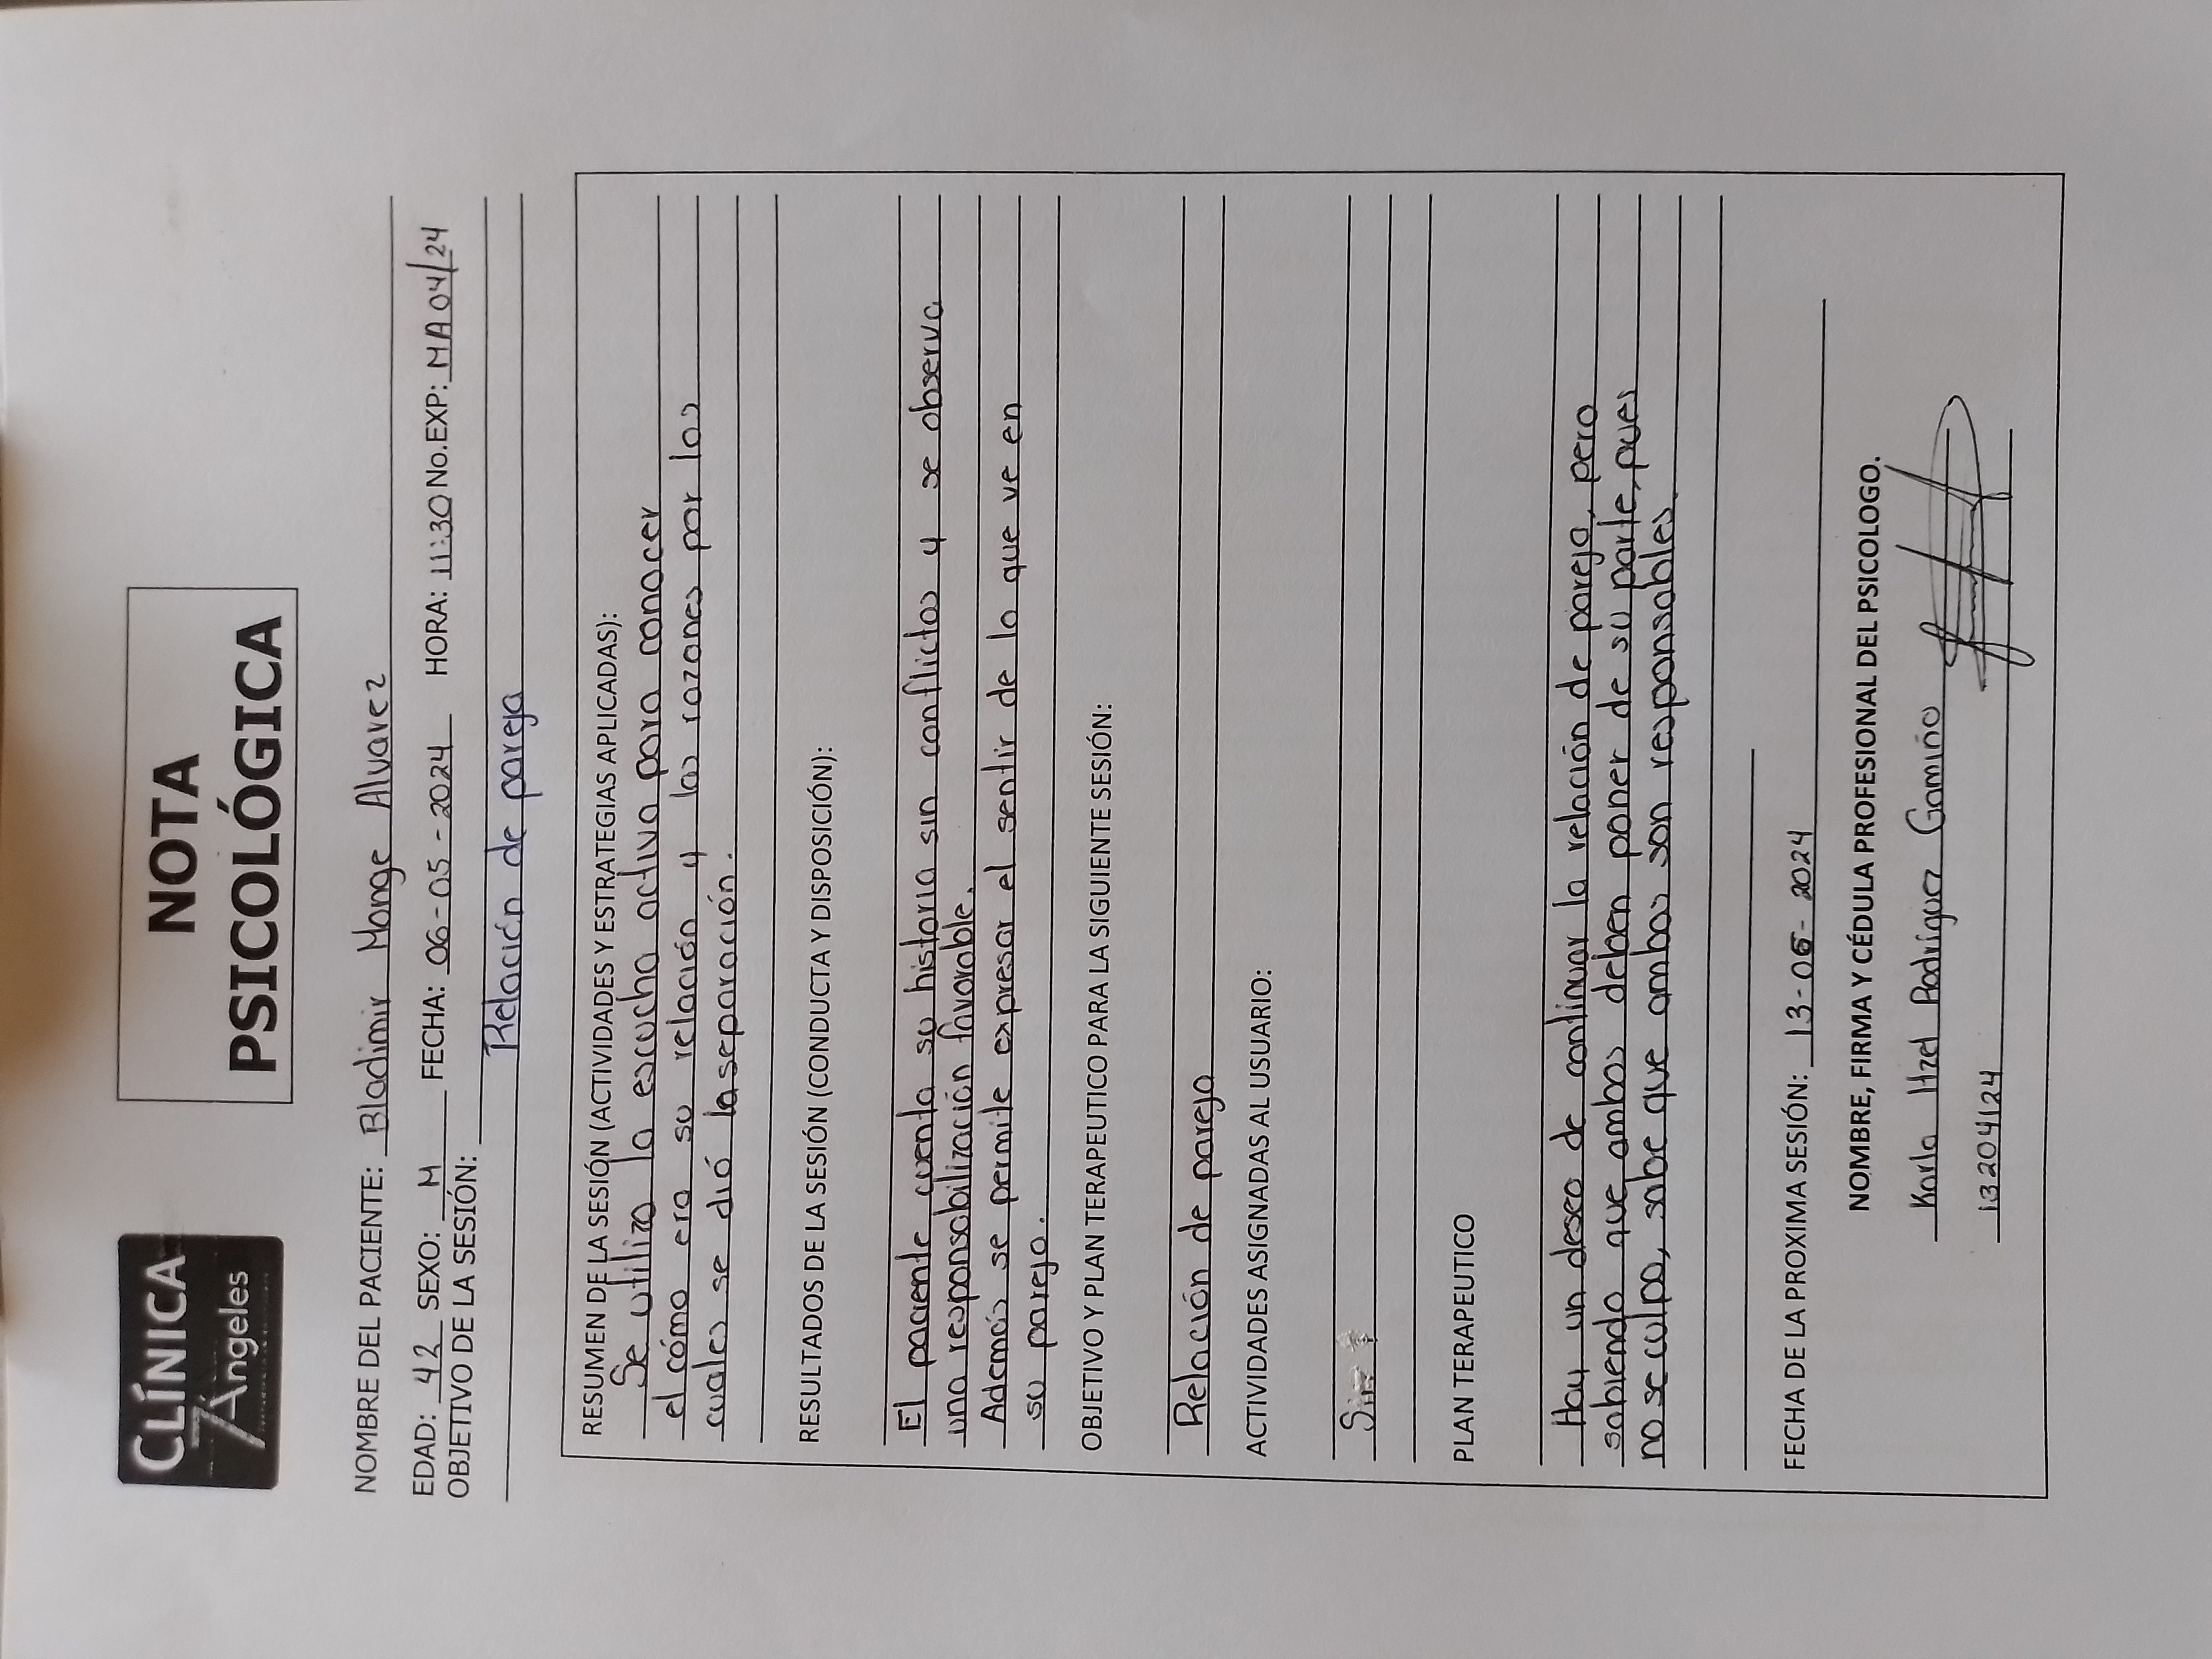 CLÍNICA
7 Ángeles
NOTA
PSICOLÓGICA
NOMBRE DEL PACIENTE: Bladimir Monge Alvarez
EDAD: 42 SEXO: M FECHA: 06-05-2024 HORA: 11:30 No.EXP: MA04/24
OBJETIVO DE LA SESIÓN:
Relación de pareja
RESUMEN DE LA SESIÓN (ACTIVIDADES Y ESTRATEGIAS APLICADAS):
Se utiliza la escucha activa para conocer
el cómo era su relación y las razones por las
cuales se dió la separación.
RESULTADOS DE LA SESIÓN (CONDUCTA Y DISPOSICIÓN):
El paciente cuenta su historia sin conflictos y se observa
una responsabilización favorable.
Además se permite expresar el sentir de lo que ve en
su pareja.
OBJETIVO Y PLAN TERAPEUTICO PARA LA SIGUIENTE SESIÓN:
Relación de pareja
ACTIVIDADES ASIGNADAS AL USUARIO:
PLAN TERAPEUTICO
Hay un deseo de continuar la relación de pareja, pero
sabiendo que ambos deben poner de su parte, pues
no se culpa, sabe que ambos son responsables.
FECHA DE LA PROXIMA SESIÓN: 13-05-2024
NOMBRE, FIRMA Y CÉDULA PROFESIONAL DEL PSICOLOGO.
Karla Itzel Rodríguez Gamiño
13204124